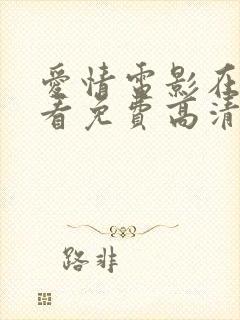 愛情電影在
看免費高清
路非